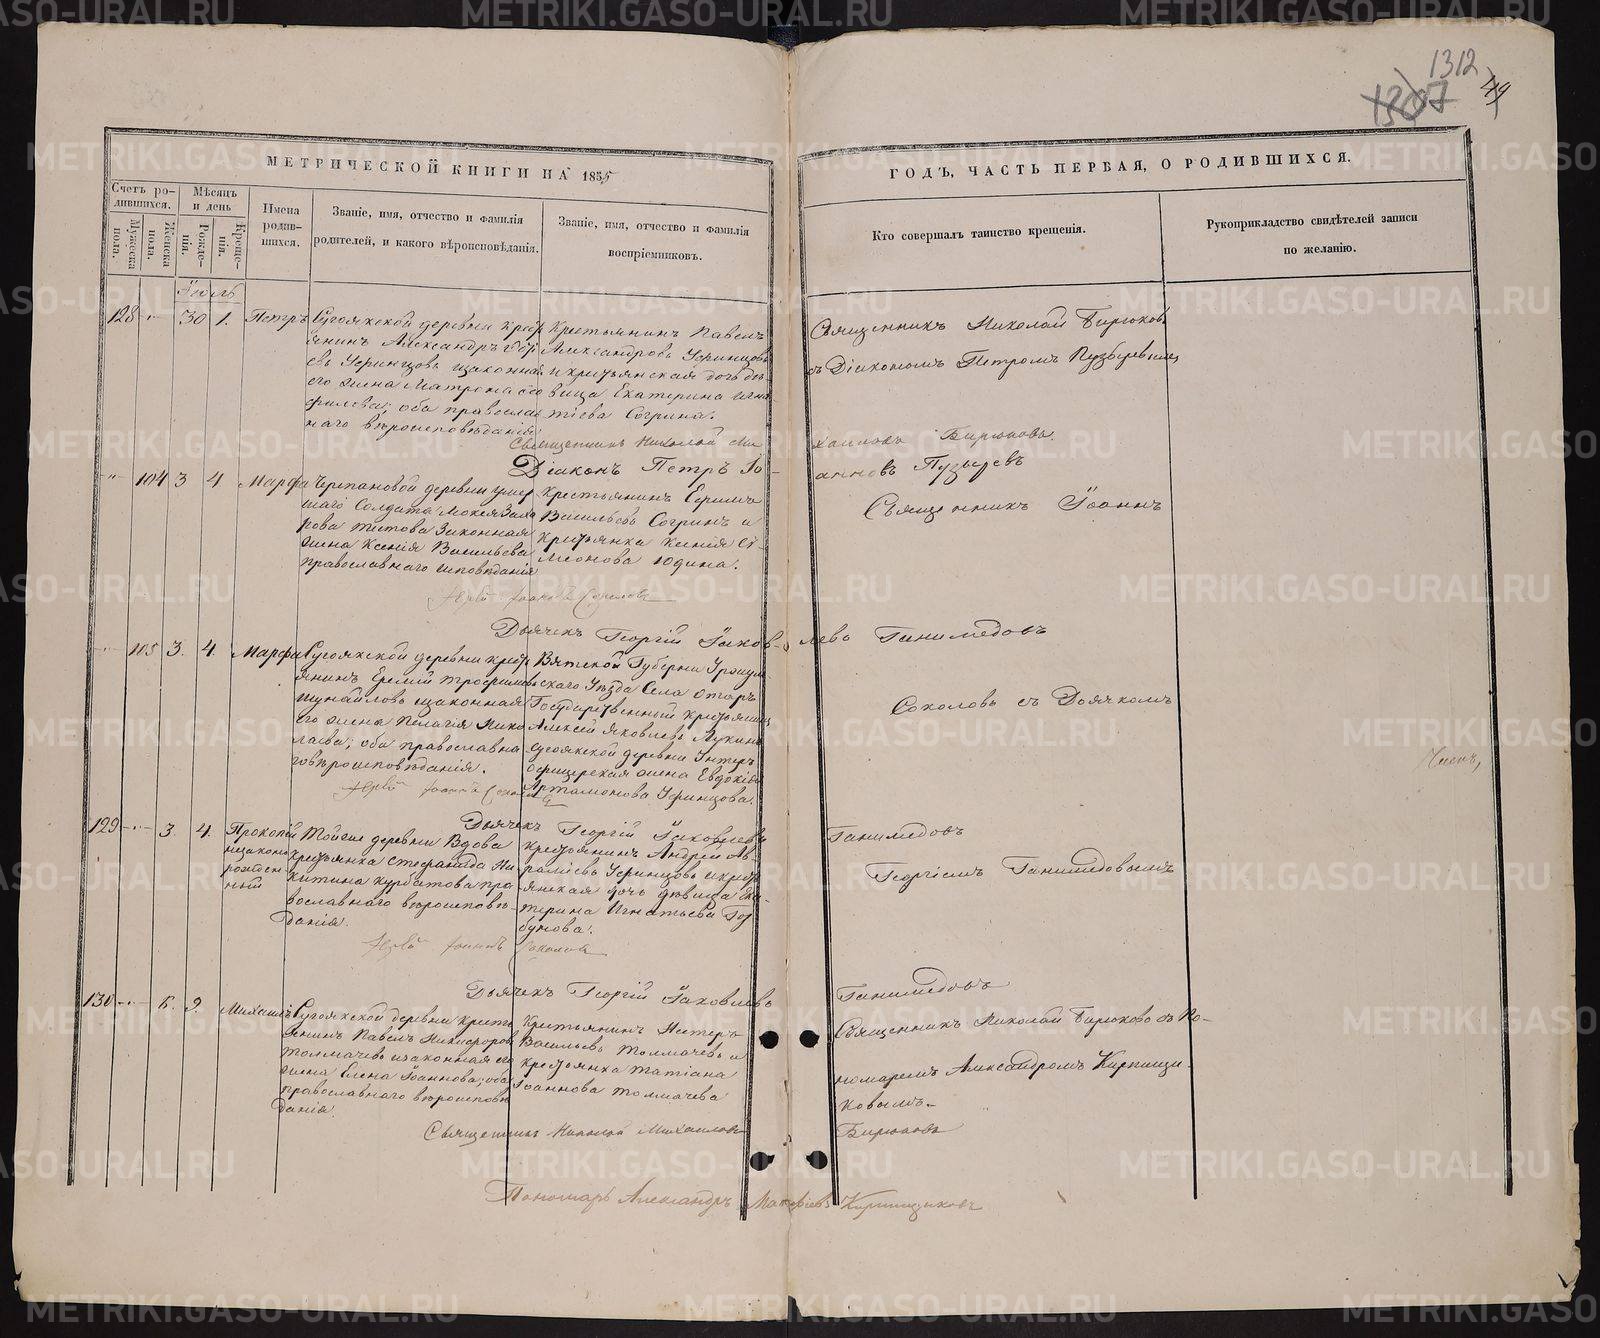 1312
1307
49
МЕТРИЧЕСКОЙ КНИГИ НА 1855
ГОДЪ, ЧАСТЬ ПЕРВАЯ, О РОДИВШИХСЯ.
Счетъ ро-
дившихся.
Мѣсяцъ
и день
Мужеска
пола.
Женска
пола.
Рожде-
нія.
Креще-
нія.
Имена
родив-
шихся.
Званіе, имя, отчество и фамилія
родителей, и какого вѣроисповѣданія.
Званіе, имя, отчество и фамилія
воспріемниковъ.
Кто совершалъ таинство крещенія.
Рукоприкладство свидѣтелей записи
по желанію.
Іюль
128 30 1. Петръ
Сугоякской деревни крест
янинъ Александръ
евъ Уфинцовъ изаконная
его жена Матрона
филева; оба правосла
внаго вѣроисповѣданія
Крестьянинъ Павелъ
Александровъ Уфинцовъ
и крестьянская дочь дѣ
вица Екатерина Игна
тіева Согрина.
Священникъ Николай Бирюковъ
съ Діакономъ Петромъ Пузыревымъ
Священникъ Николай Михаиловъ Бирюковъ.
Діаконъ Петръ Іоанновъ Пузыревъ
104 3 4 Марфа
Черепановой деревни умер
шаго Солдата Мокея Заха
рова Титова Законная
жена Ксенія Васильева
православнаго исповѣданія
Крестьянинъ Ефимъ
Васильевъ Согринъ и
крестьянка Ксенія Си-
меонова Юдина.
Священникъ Іоаннъ
Іерей Іоаннъ Соколовъ
Дьячекъ Георгій Іаковлевъ Ганимедовъ
105 3. 4. Марфа
Сугоякской деревни крест
янинъ Еремій Трофимовъ
Шунайловъ изаконная
его жена Пелагія Нико
лаева; оба православна
го вѣроисповѣданія.
Вятской Губерніи Уржум
скаго Уѣзда Села Отаръ
Государственный крестьянинъ
Алексѣй Яковлевъ Лукинъ
Сугоякской деревни Унтеръ
офицерская жена Евдокія
Артамонова Уфинцова.
Соколовъ съ Дьячкомъ
Іерей Іоаннъ Соколовъ
Дьячекъ Георгій Іаковлевъ Ганимедовъ
129 3. 4. Прокопій
незаконно
рожден
ный
деревни Вдова
крестьянка Стефанида Ни
китина Курбатова пра
вославнаго вѣроисповѣ-
данія.
Крестьянинъ Андрей Ав
рамiевъ Уфинцовъ и крест
янская дочь дѣвица Ека-
терина Игнатьева Гор
бунова.
Георгіемъ Ганимедовымъ
Іерей Іоаннъ Соколовъ
Дьячекъ Георгій Іаковлевъ Ганимедовъ
130 6. 9. Михаилъ
Сугоякской деревни кресть
янинъ Павелъ Никифоровъ
Толмачевъ изаконная его
жена Елена Іоаннова; оба
православнаго вѣроисповѣ
данія.
Крестьянинъ Нестеръ
Васильевъ Толмачевъ и
крестьянка Татіана
Іоаннова Толмачева
Священникъ Николай Бирюковъ съ По-
номаремъ Александромъ Кирпищи-
ковымъ.
Священникъ Николай Михаиловъ Бирюковъ
Пономарь Александръ Матфіевъ Кирпищиковъ
METRIKI.GASO-URAL.RU